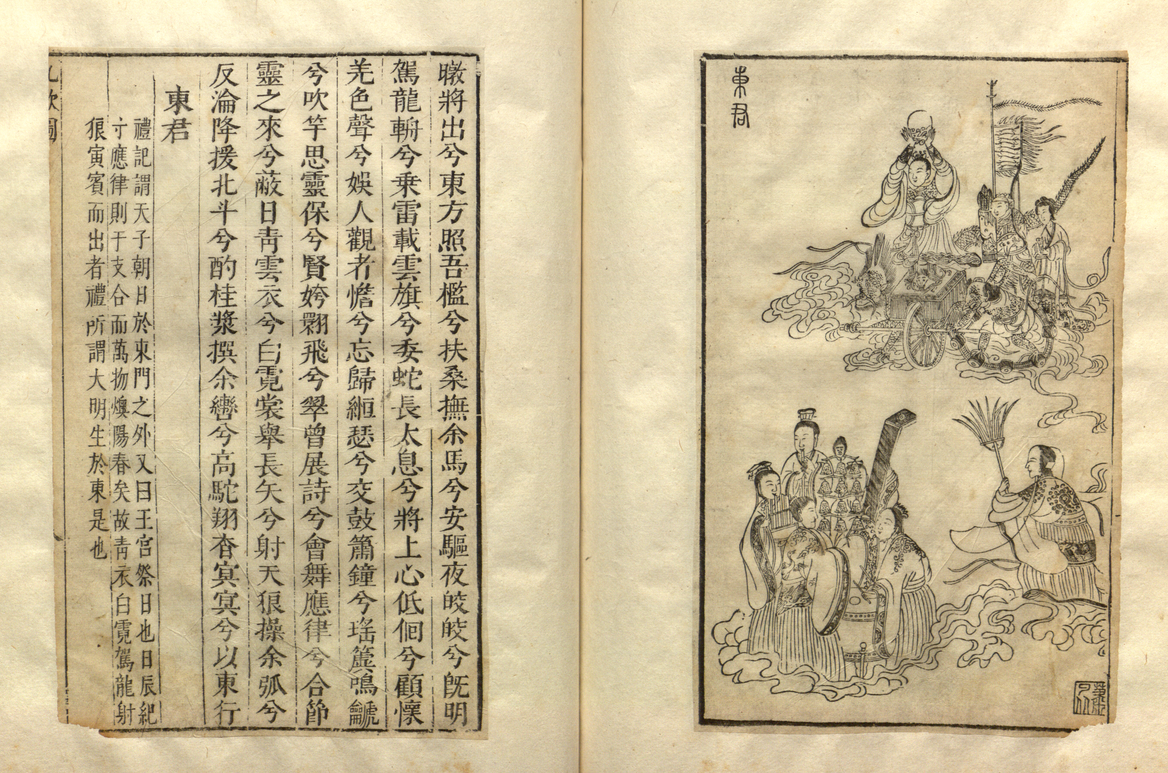 東君
暾將出兮東方照吾檻兮扶桑撫余馬兮安驅夜皎皎兮既明
駕龍輈兮乗雷載雲旗兮委蛇長太息兮將上心低佪兮顧懷
羌色聲兮娛人觀者憺兮忘歸緪瑟兮交鼓簫鐘兮瑤簴鳴䶵
兮吹竽思靈保兮賢姱翾飛兮翠曾展詩兮會舞應律兮合節
靈之來兮蔽日青雲衣兮白霓裳舉長矢兮射天狼操余弧兮
反淪降援北斗兮酌桂漿撰余轡兮高駝翔杳冥冥兮以東行
東君
禮記謂天子朝日於東門之外又曰王宮祭日也日辰紀
于應律則干支合而萬物燠陽春矣故青衣白霓駕龍射
狼寅賓而出者禮所謂大明生於東是也